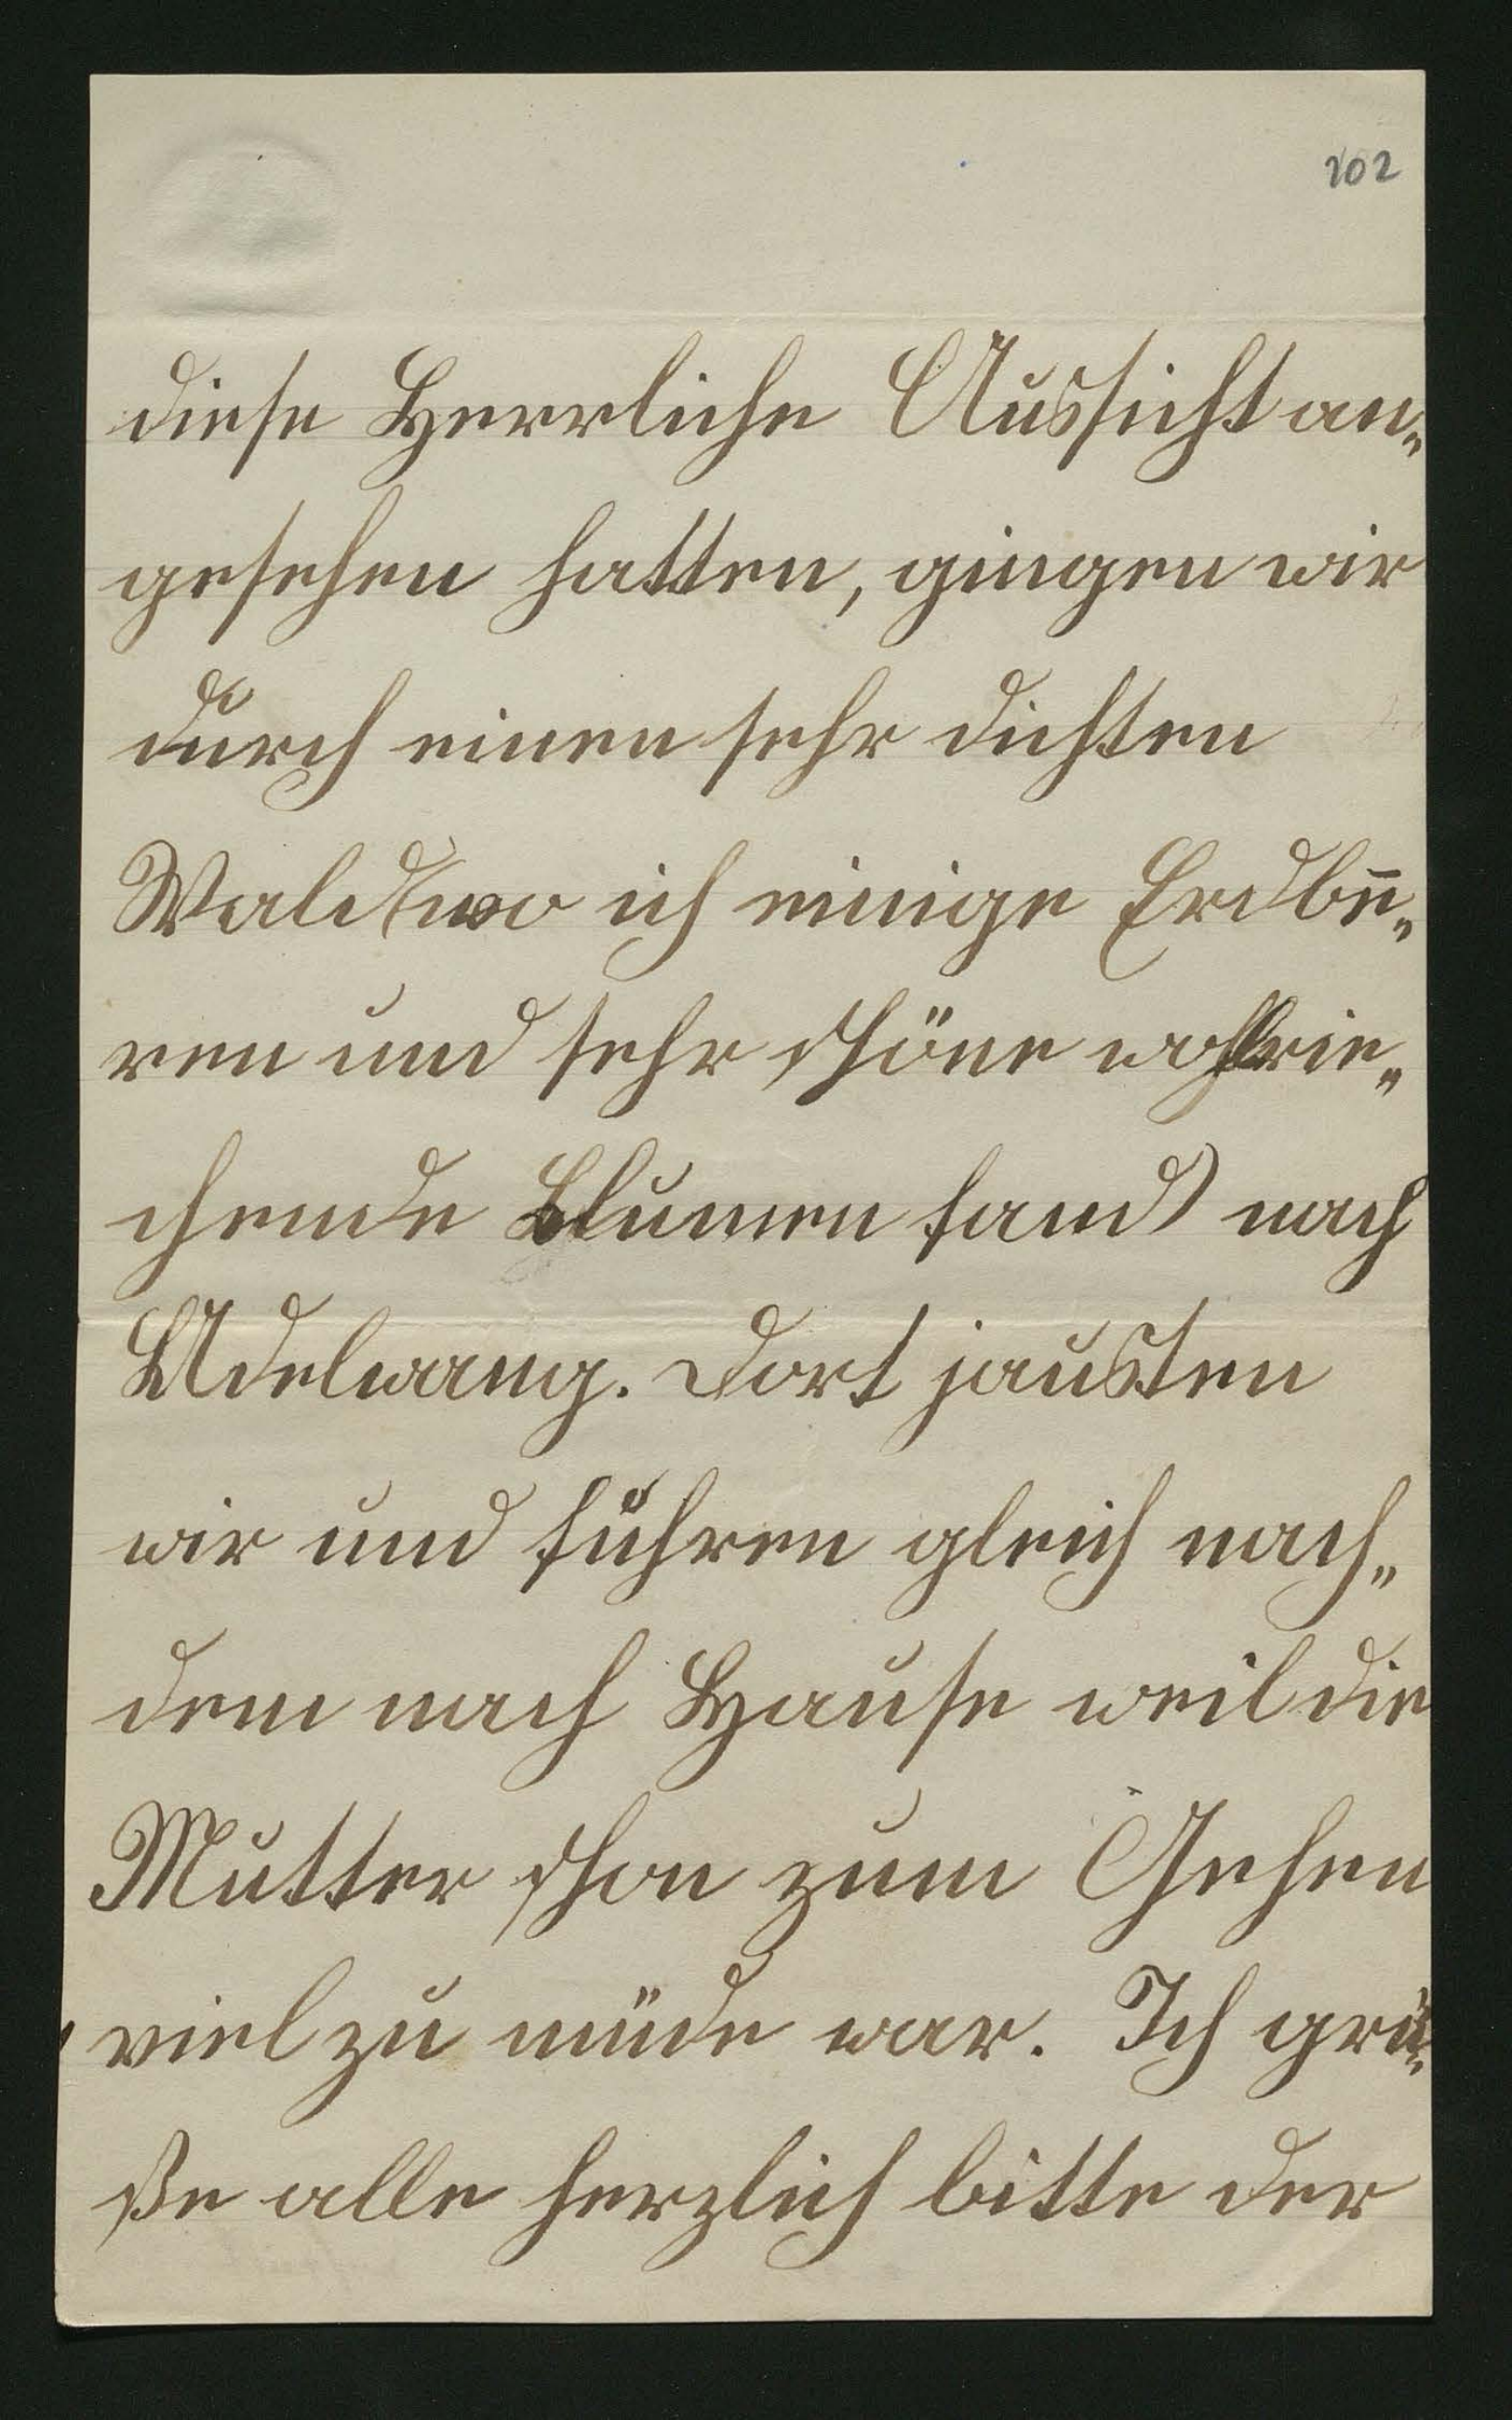 102
diese Herrliche Aussicht an„
gesehen hatten, gingen wir
durch einen sehr dichten
Wald (wo ich einige Erdbee„
ren und sehr schöne wohlrie„
chende Blumen fand) nach
Adelwang. Dort jausten
wir und fuhren gleich nach„
dem nach Hause weil die
Mutter schon zum Gehen
viel zu müde war. Ich grü„
ße alle herzlich bitte der